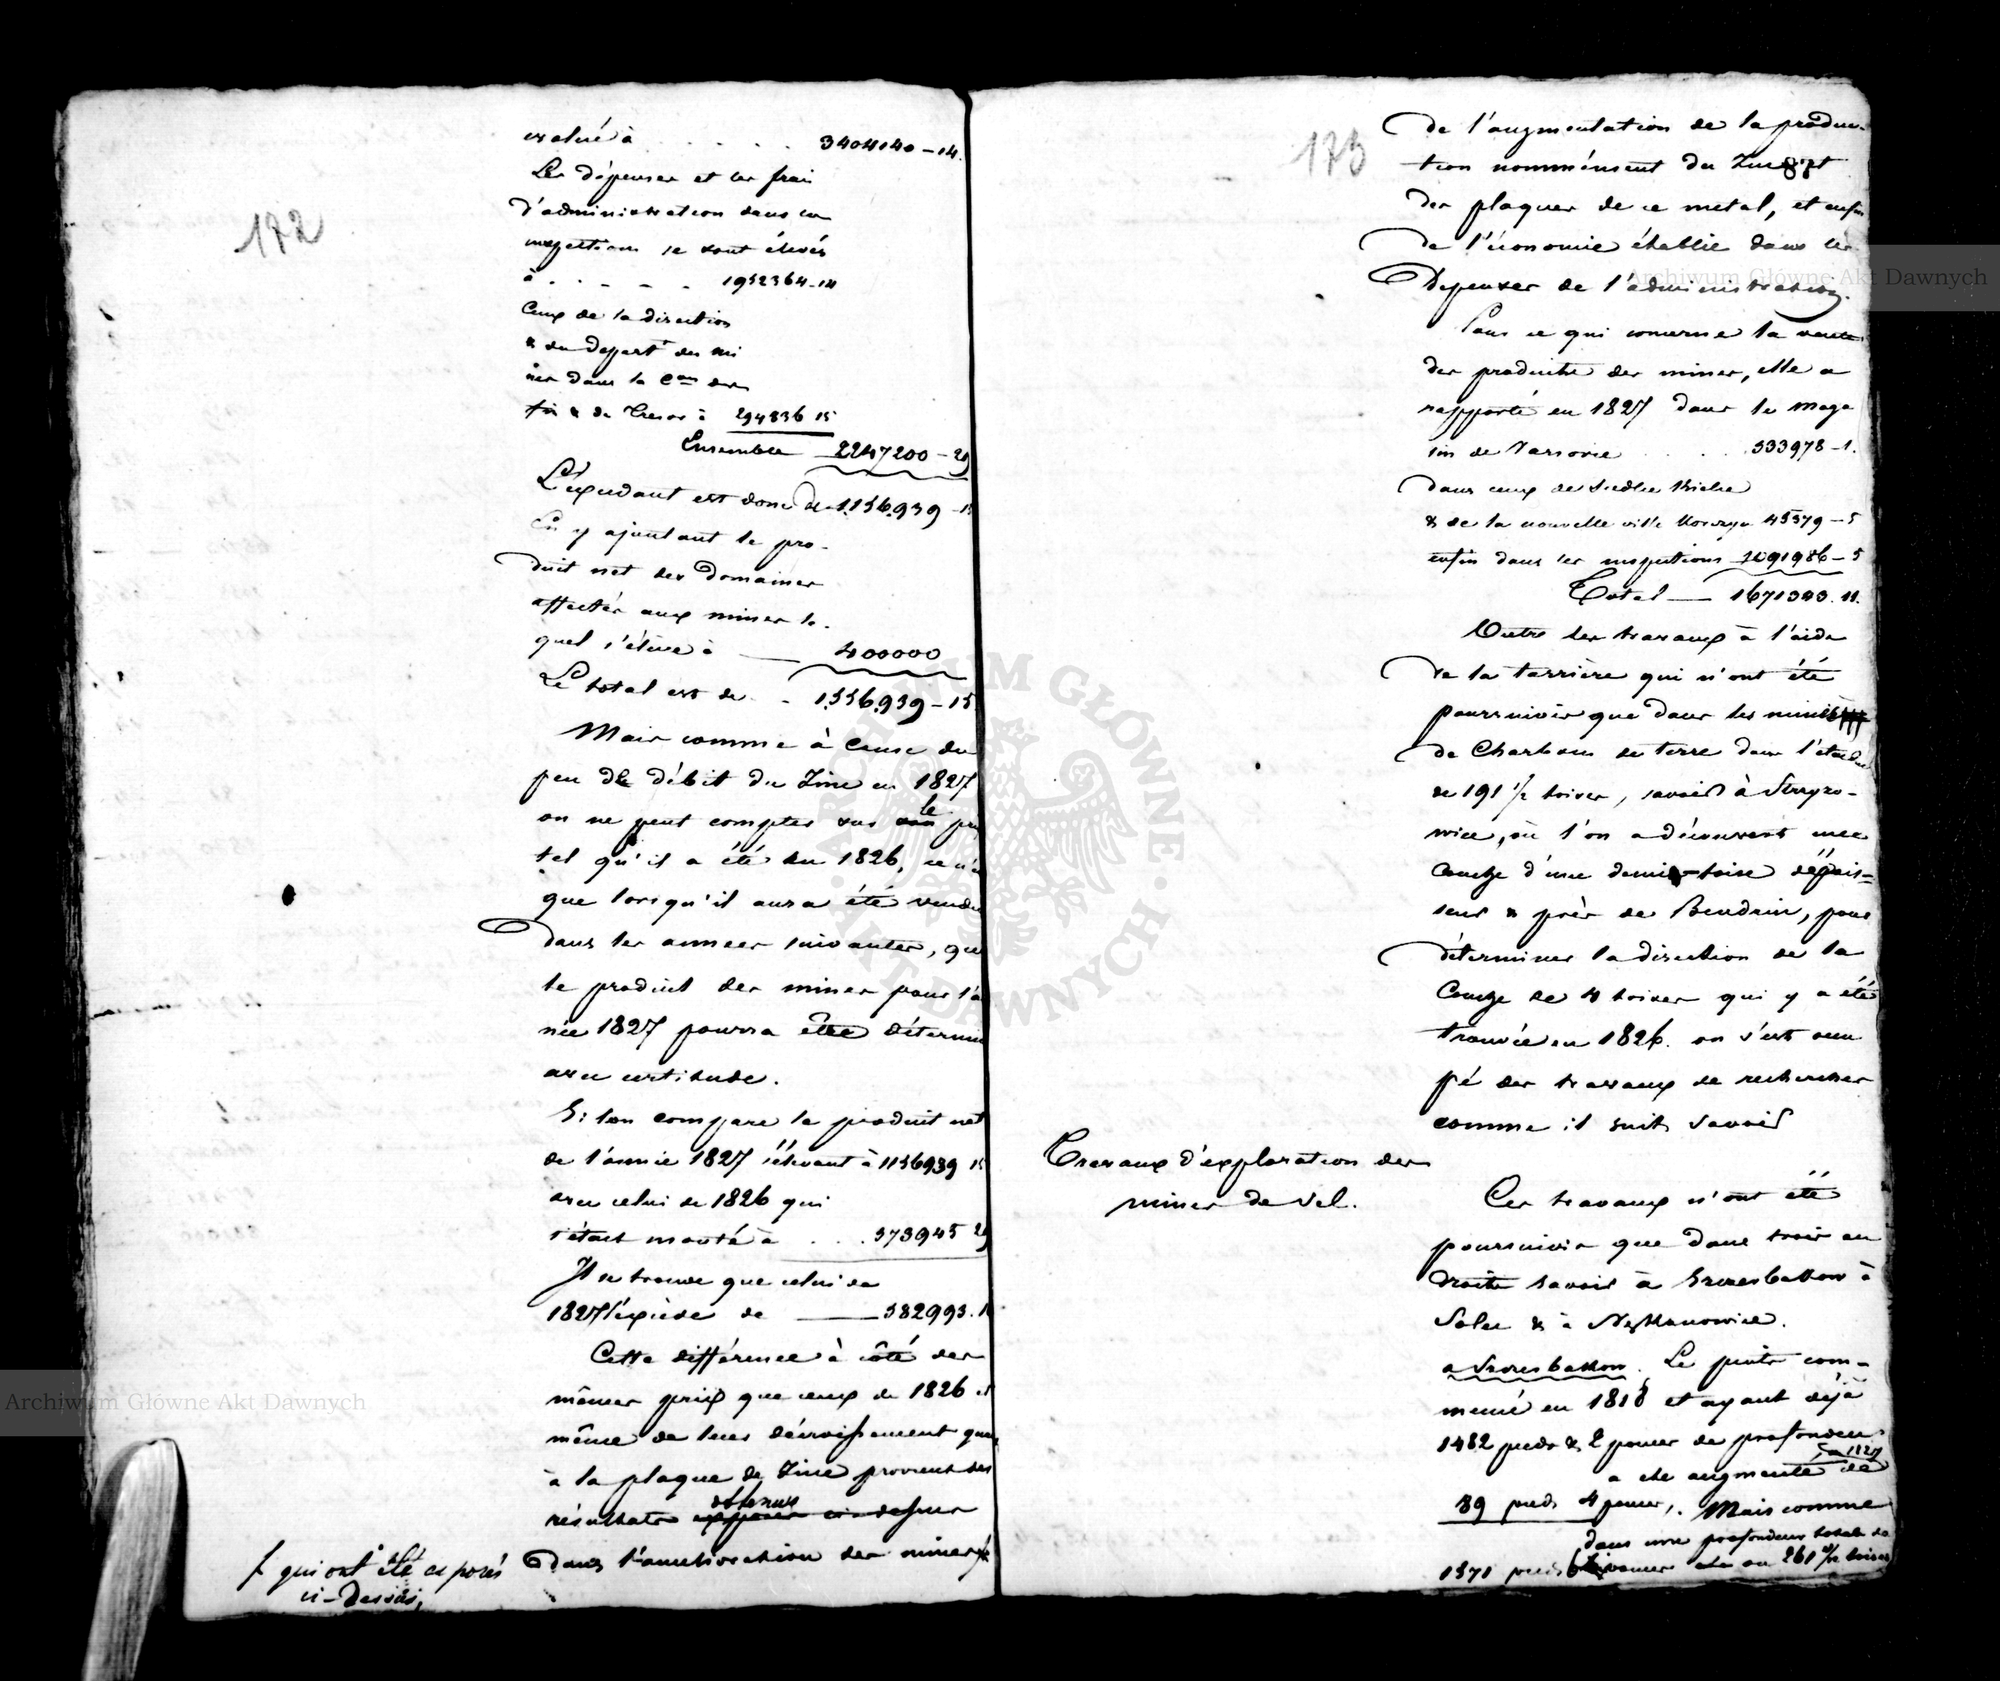 172
evalué à . . . . . 3404140 – 14.
Les dépenses et les frais
d'administration dans les
inspections se sont élevés
à . . . . . 1952364 – 14
Ceux de la direction
& du départt des mi
nes dans la Con des
fin & du Tresor à 294836 15
Ensemble 2247200 – 29
L'excédant est donc de 1.156.939 – 15
En y ajoutant le pro-
duit net des Domaines
affectés aux mines le-
quel s'élève à — 400000
Le total est de . . 1.556.939 – 15
Mais comme à cause du
peu de débit du Zinc en 1827
on ne peut compter sur le prix
tel qu'il a été en 1826, ce n'e
que lorsqu'il aura été vendu
dans les années suivantes, que
le produit des mines pour l'a
née 1827 pourra être détermi
avec certitude.
Si l'on compare le produit net
de l'année 1827 s'élevant à 1156939 15
avec celui de 1826 qui
s'était monté à . . . 573945 29
Il se trouve que celui de
1827 excède de — 582993.
Cette différence à côté des
mêmes prix que ceux de 1826 et
même de leur décroissement quant
à la plaque de Zinc provient des
résultats obtenus
dans l'amélioration des mines
qui ont été exposés
ci-Dessus,
173
de l'augmentation de la produc-
tion nommément du Zinc et
des plaques de ce metal, et enfin
de l'économie établie dans les
Depenses de l'administration.
Pour ce qui concerne la vente
des produits des mines, elle a
rapporté en 1827 dans le maga
sin de Varsovie . . . . 533978 – 1.
dans ceux de Siedlce Kielce
& de la nouvelle ville Korczyn 45379 – 5
enfin dans les inspections 1091986 – 5
Total — 1671343. 11.
Outre les travaux à l'aide
de la tarrière qui n'ont été
poursuivis que dans les mines
de Charbons de terre dans l'étendue
de 191 1/2 toises, savoir à Strzyzo-
wice, où l'on a découvert une
Couche d'une demie-toise d'épais-
seur & près de Bendzin, pour
déterminer la direction de la
Couche de 4 toises qui y a été
trouvée en 1826. on s'est occu
pé des travaux de recherches
comme il suit, savoir
Travaux d'exploration des
mines de Sel.
Ces travaux n'ont été
poursuivis que dans trois en
droits savoir à Szczerbakow à
Solec & à
a Szczerbakow. Le puits com-
mencé en 1818 et ayant déjà
1482 pieds & 2 pouces de profondeur
a été augmenté en 1827 de
89 pieds 4 pouces,. Mais comme
dans une profondeur totale de
1571 pieds 6 pouces ou 261 1/2 toises
Archiwum Główne Akt Dawnych
Archiwum Główne Akt Dawnych
ARCHIWUM GŁÓWNE · AKT DAWNYCH ·